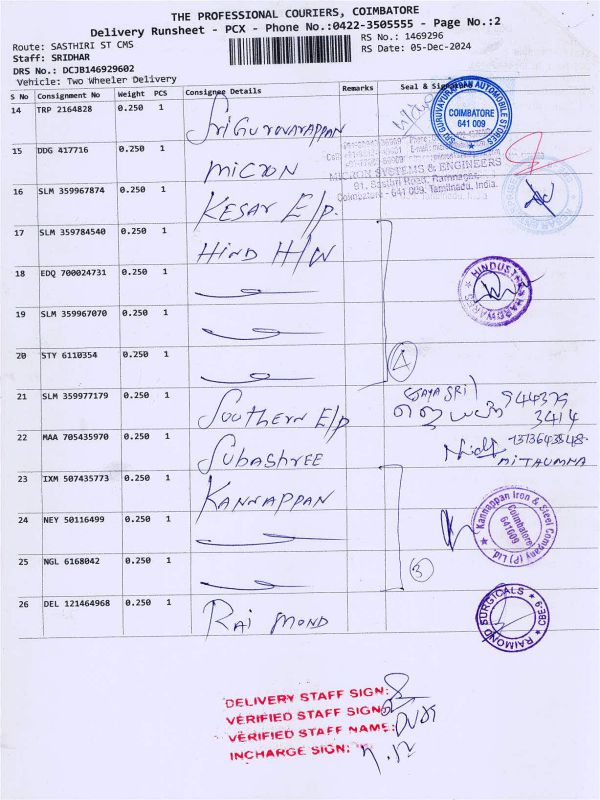 THE PROFESSIONAL COURIERS, COIMBATORE
Delivery Runsheet - PCX - Phone No.:0422-3505555 - Page No.:2
Route: SASTHIRI ST CMS
RS No.: 1469296
Staff: SRIDHAR
RS Date: 05-Dec-2024
DRS No.: DCJB146929602
Vehicle: Two Wheeler Delivery
S No Consignment No Weight PCS Consignee Details Remarks Seal & Signature
14 TRP 2164828 0.250 1 Sri Guruvarappan
SRI GURUVAYURAPPAN AUTOMOBILE STORES
COIMBATORE
641 009
15 DDG 417716 0.250 1 MICRON
MICRON SYSTEMS & ENGINEERS
91, Sastri Road, Ramnagar,
Coimbatore - 641 009, Tamilnadu, India.
16 SLM 359967874 0.250 1 KESAR E/p.
17 SLM 359784540 0.250 1 HIND H/W
18 EDQ 700024731 0.250 1
HINDUSTAN HARDWARES
19 SLM 359967070 0.250 1
20 STY 6110354 0.250 1
4
21 SLM 359977179 0.250 1 SOUTHERN E/p
(JAYA SRI)
944379
3414
22 MAA 705435970 0.250 1 SUBASHREE
MITAUMMA
23 IXM 507435773 0.250 1 KANNAPPAN
Kannappan Iron & Steel Company (P) Ltd.
Coimbatore
641009
24 NEY 50116499 0.250 1
25 NGL 6168042 0.250 1
3
26 DEL 121464968 0.250 1 RAIMOND
RAIMOND SURGICALS CBE-9
DELIVERY STAFF SIGN:
VERIFIED STAFF SIGN:
VERIFIED STAFF NAME:
INCHARGE SIGN: